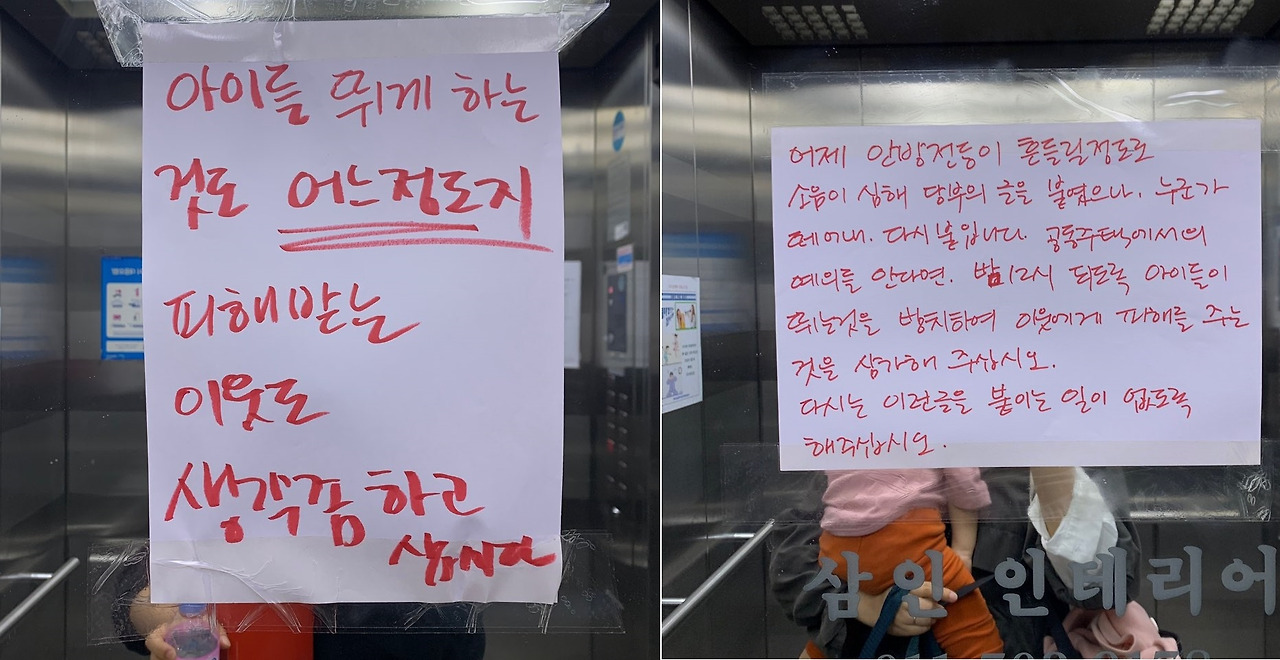 아이들 뛰게 하는
것도 어느정도지
피해받는
이웃도
생각좀 하고
삽시다
어제 안방전등이 흔들릴정도로
소음이 심해 당부의 글을 붙였으나. 누군가
떼어내. 다시 붙입니다. 공동주택에서의
예의를 안다면. 밤12시 되도록 아이들이
뛰는것을 방치하여 이웃에게 피해를 주는
것을 생각해 주십시오.
다시는 이런글을 붙이는 일이 없도록
해주십시오.
삼인 인테리어